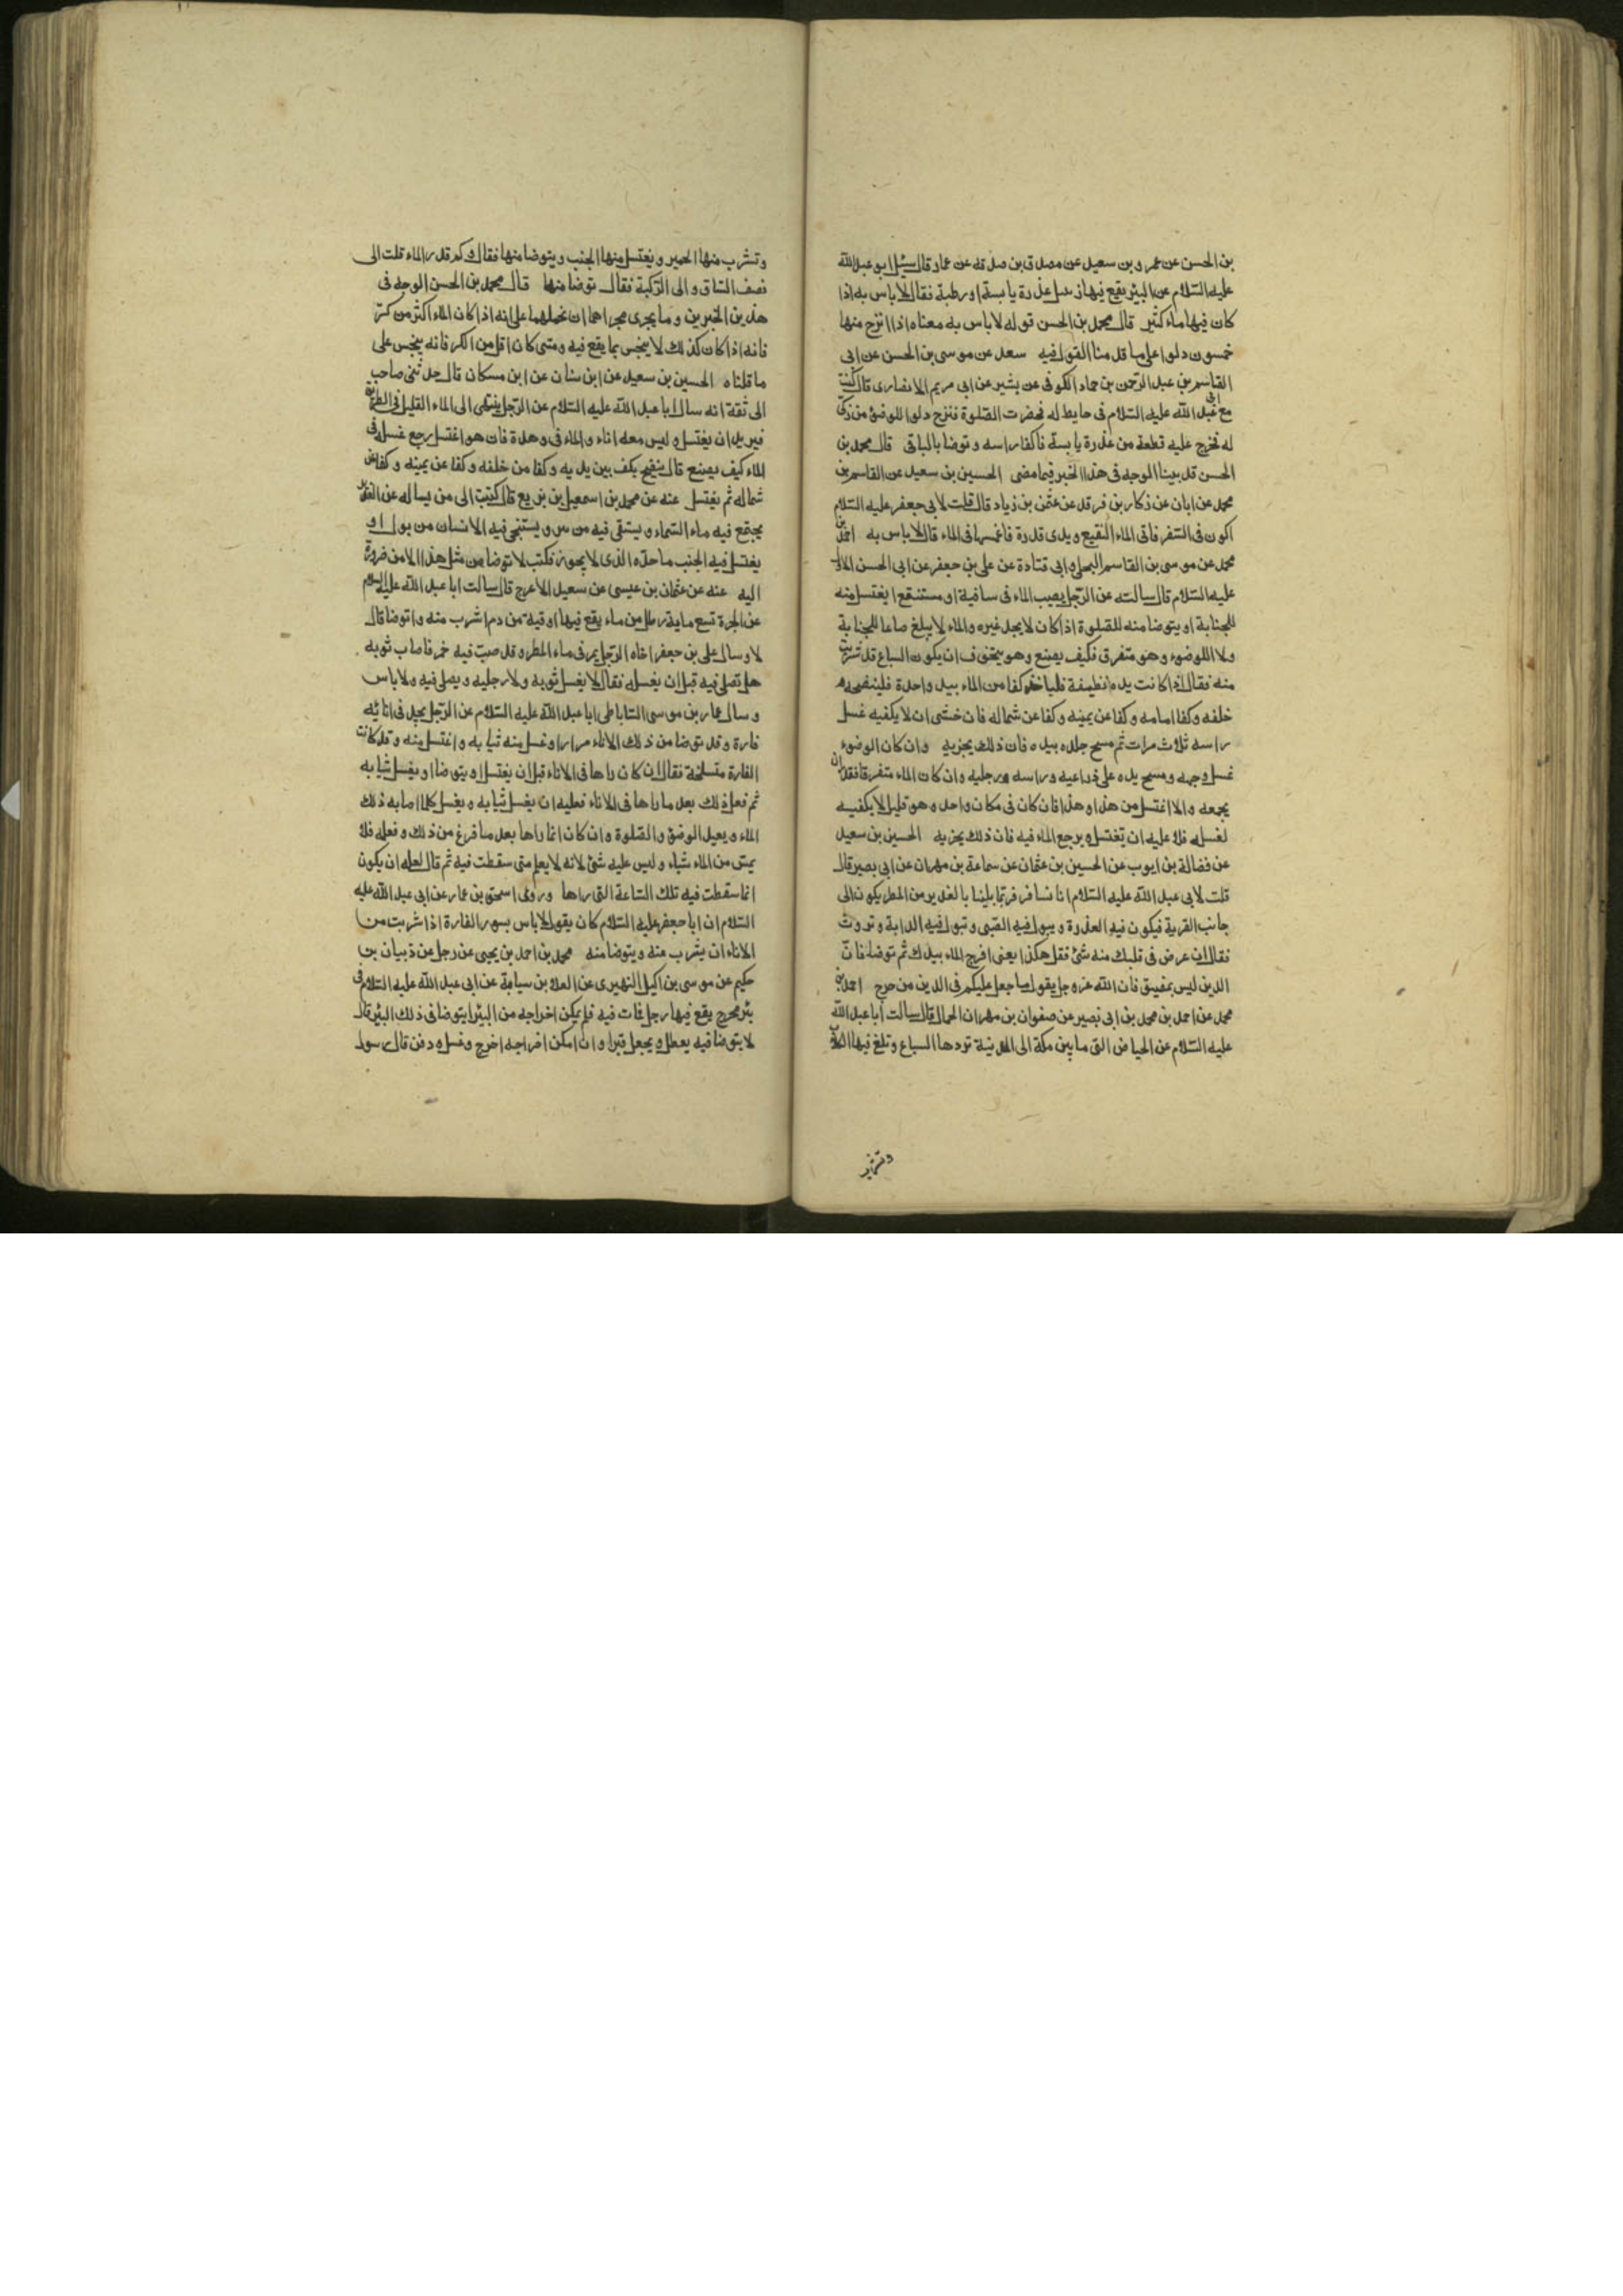 بن الحسن عن عمرو بن سعيد عن مصدق بن صدقة عن عمار قال سئل ابو عبد الله
عليه السلام عن البئر يقع فيها زنبيل عذرة يابسة او رطبة فقال لا باس به اذا
كان فيها ماء كثير قال محمد بن الحسن قوله لا باس به معناه اذا انزح منها
خمسون دلوا على ما قدمنا القول فيه سعد عن موسى بن الحسن عن ابى
القاسم بن عبد الرحمن بن حماد الكوفى عن بشير عن ابى مريم الانصارى قال كنت
مع ابى عبد الله عليه السلام فى حايط له فحضرت الصلوة فنزح دلوا للوضوء من ركى
له فخرج عليه قطعة من عذرة يابسة فاكفا راسه و توضا بالباقى قال محمد بن
الحسن قد بينا الوجه فى هذا الخبر فيما مضى الحسين بن سعيد عن القاسم بن
محمد عن ابان عن زكار بن فرقد عن عثمن بن زياد قال قلت لابى جعفر عليه السلام
اكون فى السفر فاتى الماء النقيع و يدى قذرة فاغمسها فى الماء قال لا باس به احمد بن
محمد عن موسى بن القاسم البجلى و ابى قتادة عن على بن جعفر عن ابى الحسن الاول
عليه السلام قال سالته عن الرجل يصيب الماء فى ساقية او مستنقع ايغتسل منه
للجنابة او يتوضا منه للصلوة اذا كان لا يجد غيره والماء لا يبلغ صاعا للجنابة
ولا مدا للوضوء و هو متفرق فكيف يصنع وهو يتخوف ان يكون السباع قد شربت
منه فقال اذا كانت يده نظيفة فلياخذ كفا من الماء بيد واحدة فلينضحه
خلفه و كفا امامه و كفا عن يمينه و كفا عن شماله فان خشى ان لا يكفيه غسل
راسه ثلاث مرات ثم مسح جلده بيده فان ذلك يجزيه وان كان الوضوء
غسل وجهه ومسح يده على ذراعيه وراسه ورجليه وان كان الماء متفرقا فقدر ان
يجمعه والا اغتسل من هذا و هذا فان كان فى مكان واحد و هو قليل لا يكفيه
لغسله فلا عليه ان يغتسل و يرجع الماء فيه فان ذلك يجزيه الحسين بن سعيد
عن فضالة بن ايوب عن الحسين بن عثمان عن سماعة بن مهران عن ابى بصير قال
قلت لابى عبد الله عليه السلام انا نسافر فربما بلينا بالغدير من المطر يكون الى
جانب القرية فيكون فيه العذرة و يبول فيه الصبى و تبول فيه الدابة و تروث
فقال ان عرض فى قلبك منه شئ فقل هكذا يعنى افرج الماء بيدك ثم توضا فان
الدين ليس بمضيق فان الله عز و جل يقول ما جعل عليكم فى الدين من حرج احمد بن
محمد عن احمد بن محمد بن ابى نصير عن صفوان بن مهران الجمال قال سالت ابا عبد الله
عليه السلام عن الحياض التى ما بين مكة الى المدينة تردها السباع و تلغ فيها الكلاب
وتشرب
و تشرب منها الحمير و يغتسل منها الجنب و يتوضا منها فقال و كم قدر الماء قلت الى
نصف الساق و الى الركبة فقال توضا منها قال محمد بن الحسن الوجه فى
هذين الخبرين و ما يجرى مجراهما ان نحملهما على انه اذا كان الماء اكثر من كر
فانه اذا كان كذلك لا ينجس بما يقع فيه و متى كان اقل من الكر فانه ينجس على
ما قلناه الحسين بن سعيد عن ابن سنان عن ابن مسكان قال حدثنى صاحب
لى ثقة انه سال ابا عبد الله عليه السلام عن الرجل ينتهى الى الماء القليل فى الطريق
فيريد ان يغتسل و ليس معه اناء و الماء فى وهدة فان هو اغتسل رجع غسله فى
الماء كيف يصنع قال ينضح بكف بين يديه و كفا من خلفه و كفا عن يمينه و كفا عن
شماله ثم يغتسل عنه عن محمد بن اسمعيل بن بزيع قال كتبت الى من يساله عن الغدير
يجتمع فيه ماء السماء و يستقى فيه من بئر و يستنجى فيه الانسان من بول او
يغتسل فيه الجنب ما حده الذى لا يجوز فكتب لا توضا من مثل هذا الا من ضرورة
اليه عنه عن عثمان بن عيسى عن سعيد الاعرج قال سالت ابا عبد الله عليه السلام
عن الجرة تسع ماية رطل من ماء يقع فيها اوقية من دم اشرب منه و اتوضا قال
لا و سال على بن جعفر اخاه الرجل يمر فى ماء المطر و قد صب فيه خمر فاصاب ثوبه
هل تصلى فيه قبل ان يغسله فقال لا يغسل ثوبه ولا رجليه و يصلى فيه ولا باس
و سال عمار بن موسى الساباطى ابا عبد الله عليه السلام عن الرجل يجد فى انائه
فارة و قد توضا من ذلك الاناء مرارا و غسل منه ثيابه و اغتسل منه و قد كانت
الفارة متسلخة فقال ان كان راها فى الاناء قبل ان يغتسل او يتوضا او يغسل ثيابه
ثم فعل ذلك بعد ما راها فى الاناء فعليه ان يغسل ثيابه و يغسل كلما اصابه ذلك
الماء و يعيد الوضوء والصلوة وان كان انما راها بعد ما فرغ من ذلك و فعله فلا
يمس من الماء شياء و ليس عليه شئ لانه لا يعلم متى سقطت فيه ثم قال لعله ان يكون
انما سقطت فيه تلك الساعة التى راها و روى اسحق بن عمار عن ابى عبد الله عليه
السلام ان ابا جعفر عليه السلام كان يقول لا باس بسور الفارة اذا شربت من
الاناء ان يشرب منه و يتوضا منه محمد بن احمد بن يحيى عن رجل عن ذبيان بن
حكيم عن موسى بن اكيل النميرى عن العلا بن سيابة عن ابى عبد الله عليه السلام فى
بئر مخرج يقع فيها رجل فمات فيه فلم يمكن اخراجه من البئر ايتوضا فى ذلك البئر قال
لا يتوضا فيه يعطل و يجعل قبرا وان امكن اخراجه اخرج و غسل و دفن قال رسول